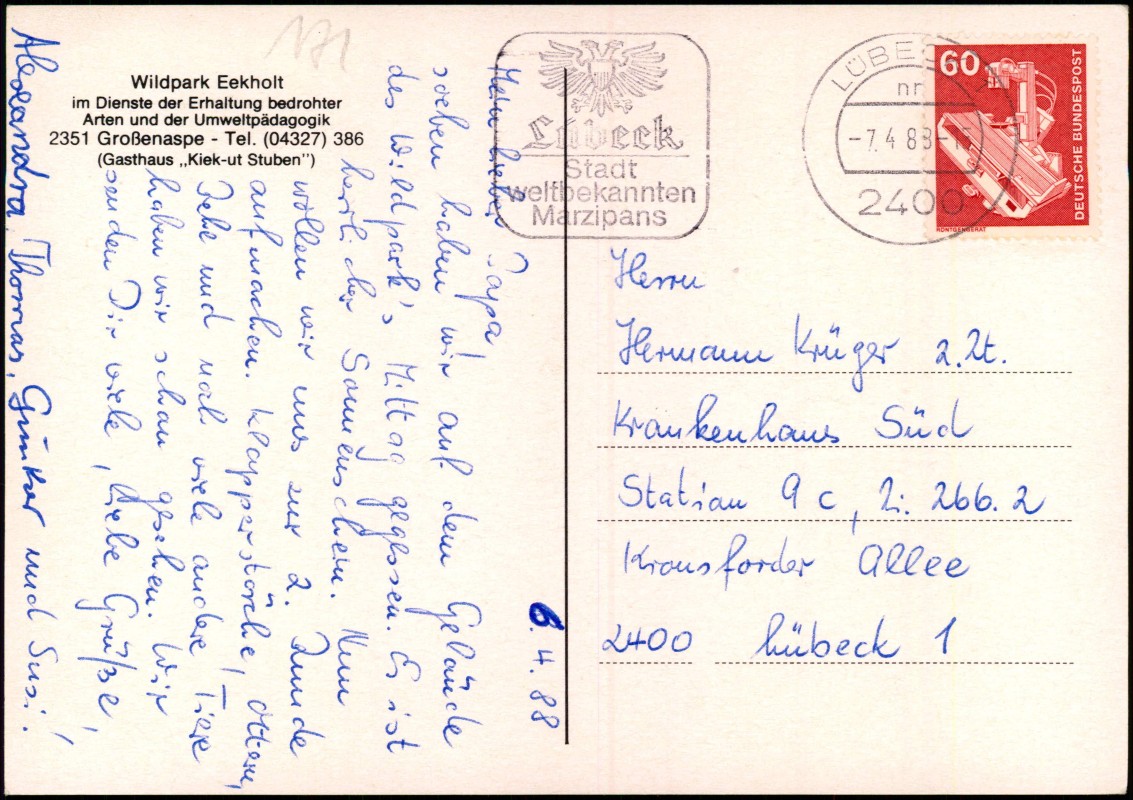 171
Wildpark Eekholt
im Dienste der Erhaltung bedrohter
Arten und der Umweltpädagogik
2351 Großenaspe - Tel. (04327) 386
(Gasthaus „Kiek-ut Stuben")
6.4.88
Mein lieber Papa,
soeben haben wir auf dem Gelände
des Wildpark's Mittag gegessen. Es ist
herrlicher Sonnenschein. Nun
wollen wir uns zur 2. Runde
aufmachen. Klapperstörche, Ottern,
Rehe und noch viele andere Tiere
haben wir schon gesehen. Wir
senden Dir viele, liebe Grüße,
Alexandra, Thomas, Günter und Susi!
Lübeck
Stadt
weltbekannten
Marzipans
LÜBECK
-7.4.88-
2400
60
DEUTSCHE BUNDESPOST
RÖNTGENGERÄT
Herrn
Hermann Krüger z.Zt.
Krankenhaus Süd
Station 9c, Z: 266.2
Kronsforder Allee
2400 Lübeck 1